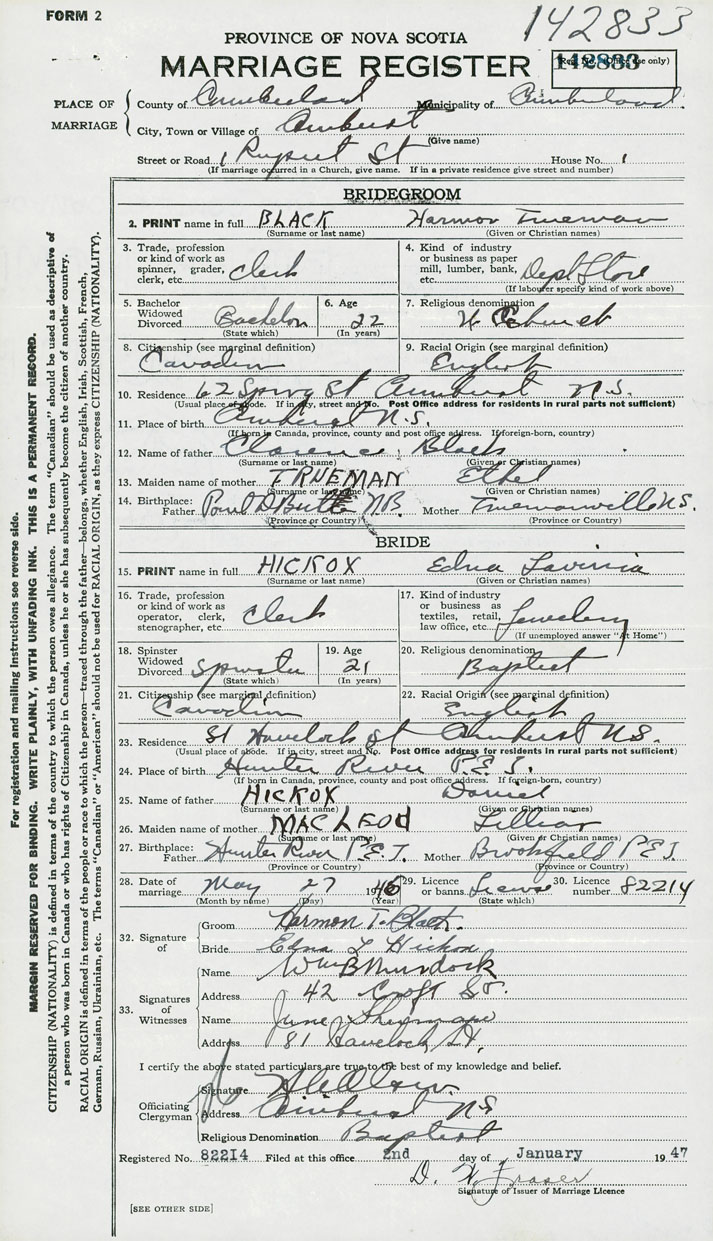 FORM 2
142833
PROVINCE OF NOVA SCOTIA
MARRIAGE REGISTER
Reg. No. (Office use only)
142833
PLACE OF MARRIAGE
County of Cumberland Municipality of Cumberland
City, Town or Village of Amherst
(Give name)
Street or Road 1 Rupert St House No. 1
(If marriage occurred in a Church, give name. If in a private residence give street and number)
BRIDEGROOM
2. PRINT name in full BLACK Harmon Trueman
(Surname or last name) (Given or Christian names)
3. Trade, profession or kind of work as spinner, grader, clerk, etc. Clerk
4. Kind of industry or business as paper mill, lumber, bank, etc. Dept Store
(If labourer specify kind of work above)
5. Bachelor Widowed Divorced Bachelor
(State which)
6. Age 22
(In years)
7. Religious denomination U Church
8. Citizenship (see marginal definition) Canadian
9. Racial Origin (see marginal definition) English
10. Residence 62 Spring St Amherst N.S.
(Usual place of abode. If in city, street and No. Post Office address for residents in rural parts not sufficient)
11. Place of birth Amherst N.S.
(If born in Canada, province, county and post office address. If foreign-born, country)
12. Name of father Clarence Black
(Surname or last name) (Given or Christian names)
13. Maiden name of mother TRUEMAN Ethel
(Surname or last name) (Given or Christian names)
14. Birthplace: Father Point D Bute N.B. Mother Truemanville N.S.
(Province or Country) (Province or Country)
BRIDE
15. PRINT name in full HICKOX Edna Lavinia
(Surname or last name) (Given or Christian names)
16. Trade, profession or kind of work as operator, clerk, stenographer, etc. Clerk
17. Kind of industry or business as textiles, retail, law office, etc. Jewelery
(If unemployed answer "At Home")
18. Spinster Widowed Divorced Spinster
(State which)
19. Age 21
(In years)
20. Religious denomination Baptist
21. Citizenship (see marginal definition) Canadian
22. Racial Origin (see marginal definition) English
23. Residence 81 Havelock St Amherst N.S.
(Usual place of abode. If in city, street and No. Post Office address for residents in rural parts not sufficient)
24. Place of birth Hunter River P.E.I.
(If born in Canada, province, county and post office address. If foreign-born, country)
25. Name of father HICKOX Daniel
(Surname or last name) (Given or Christian names)
26. Maiden name of mother MACLEOD Lillian
(Surname or last name) (Given or Christian names)
27. Birthplace: Father Hunter River P.E.I. Mother Brookfield P.E.I.
(Province or Country) (Province or Country)
28. Date of marriage May 27 1946
(Month by name) (Day) (Year)
29. Licence or banns License
(State which)
30. Licence number 82214
32. Signature of
Groom Harmon T. Black
Bride Edna L Hickox
33. Signatures of Witnesses
Name Wm B Murdock
Address 42 Croft St.
Name June
Address 81 Havelock St.
I certify the above stated particulars are true to the best of my knowledge and belief.
Officiating Clergyman
Signature
Address Amherst N S
Religious Denomination Baptist
Registered No. 82214 Filed at this office 2nd day of January 1947
D. W. Fraser
Signature of Issuer of Marriage Licence
[SEE OTHER SIDE]
For registration and mailing instructions see reverse side.
MARGIN RESERVED FOR BINDING. WRITE PLAINLY, WITH UNFADING INK. THIS IS A PERMANENT RECORD.
CITIZENSHIP (NATIONALITY) is defined in terms of the country to which the person owes allegiance. The term "Canadian" should be used as descriptive of
a person who was born in Canada or who has rights of Citizenship in Canada, unless he or she has subsequently become the citizen of another country.
RACIAL ORIGIN is defined in terms of the people or race to which the person—traced through the father—belongs, whether English, Irish, Scottish, French,
German, Russian, Ukrainian, etc. The terms "Canadian" or "American" should not be used for RACIAL ORIGIN, as they express CITIZENSHIP (NATIONALITY).